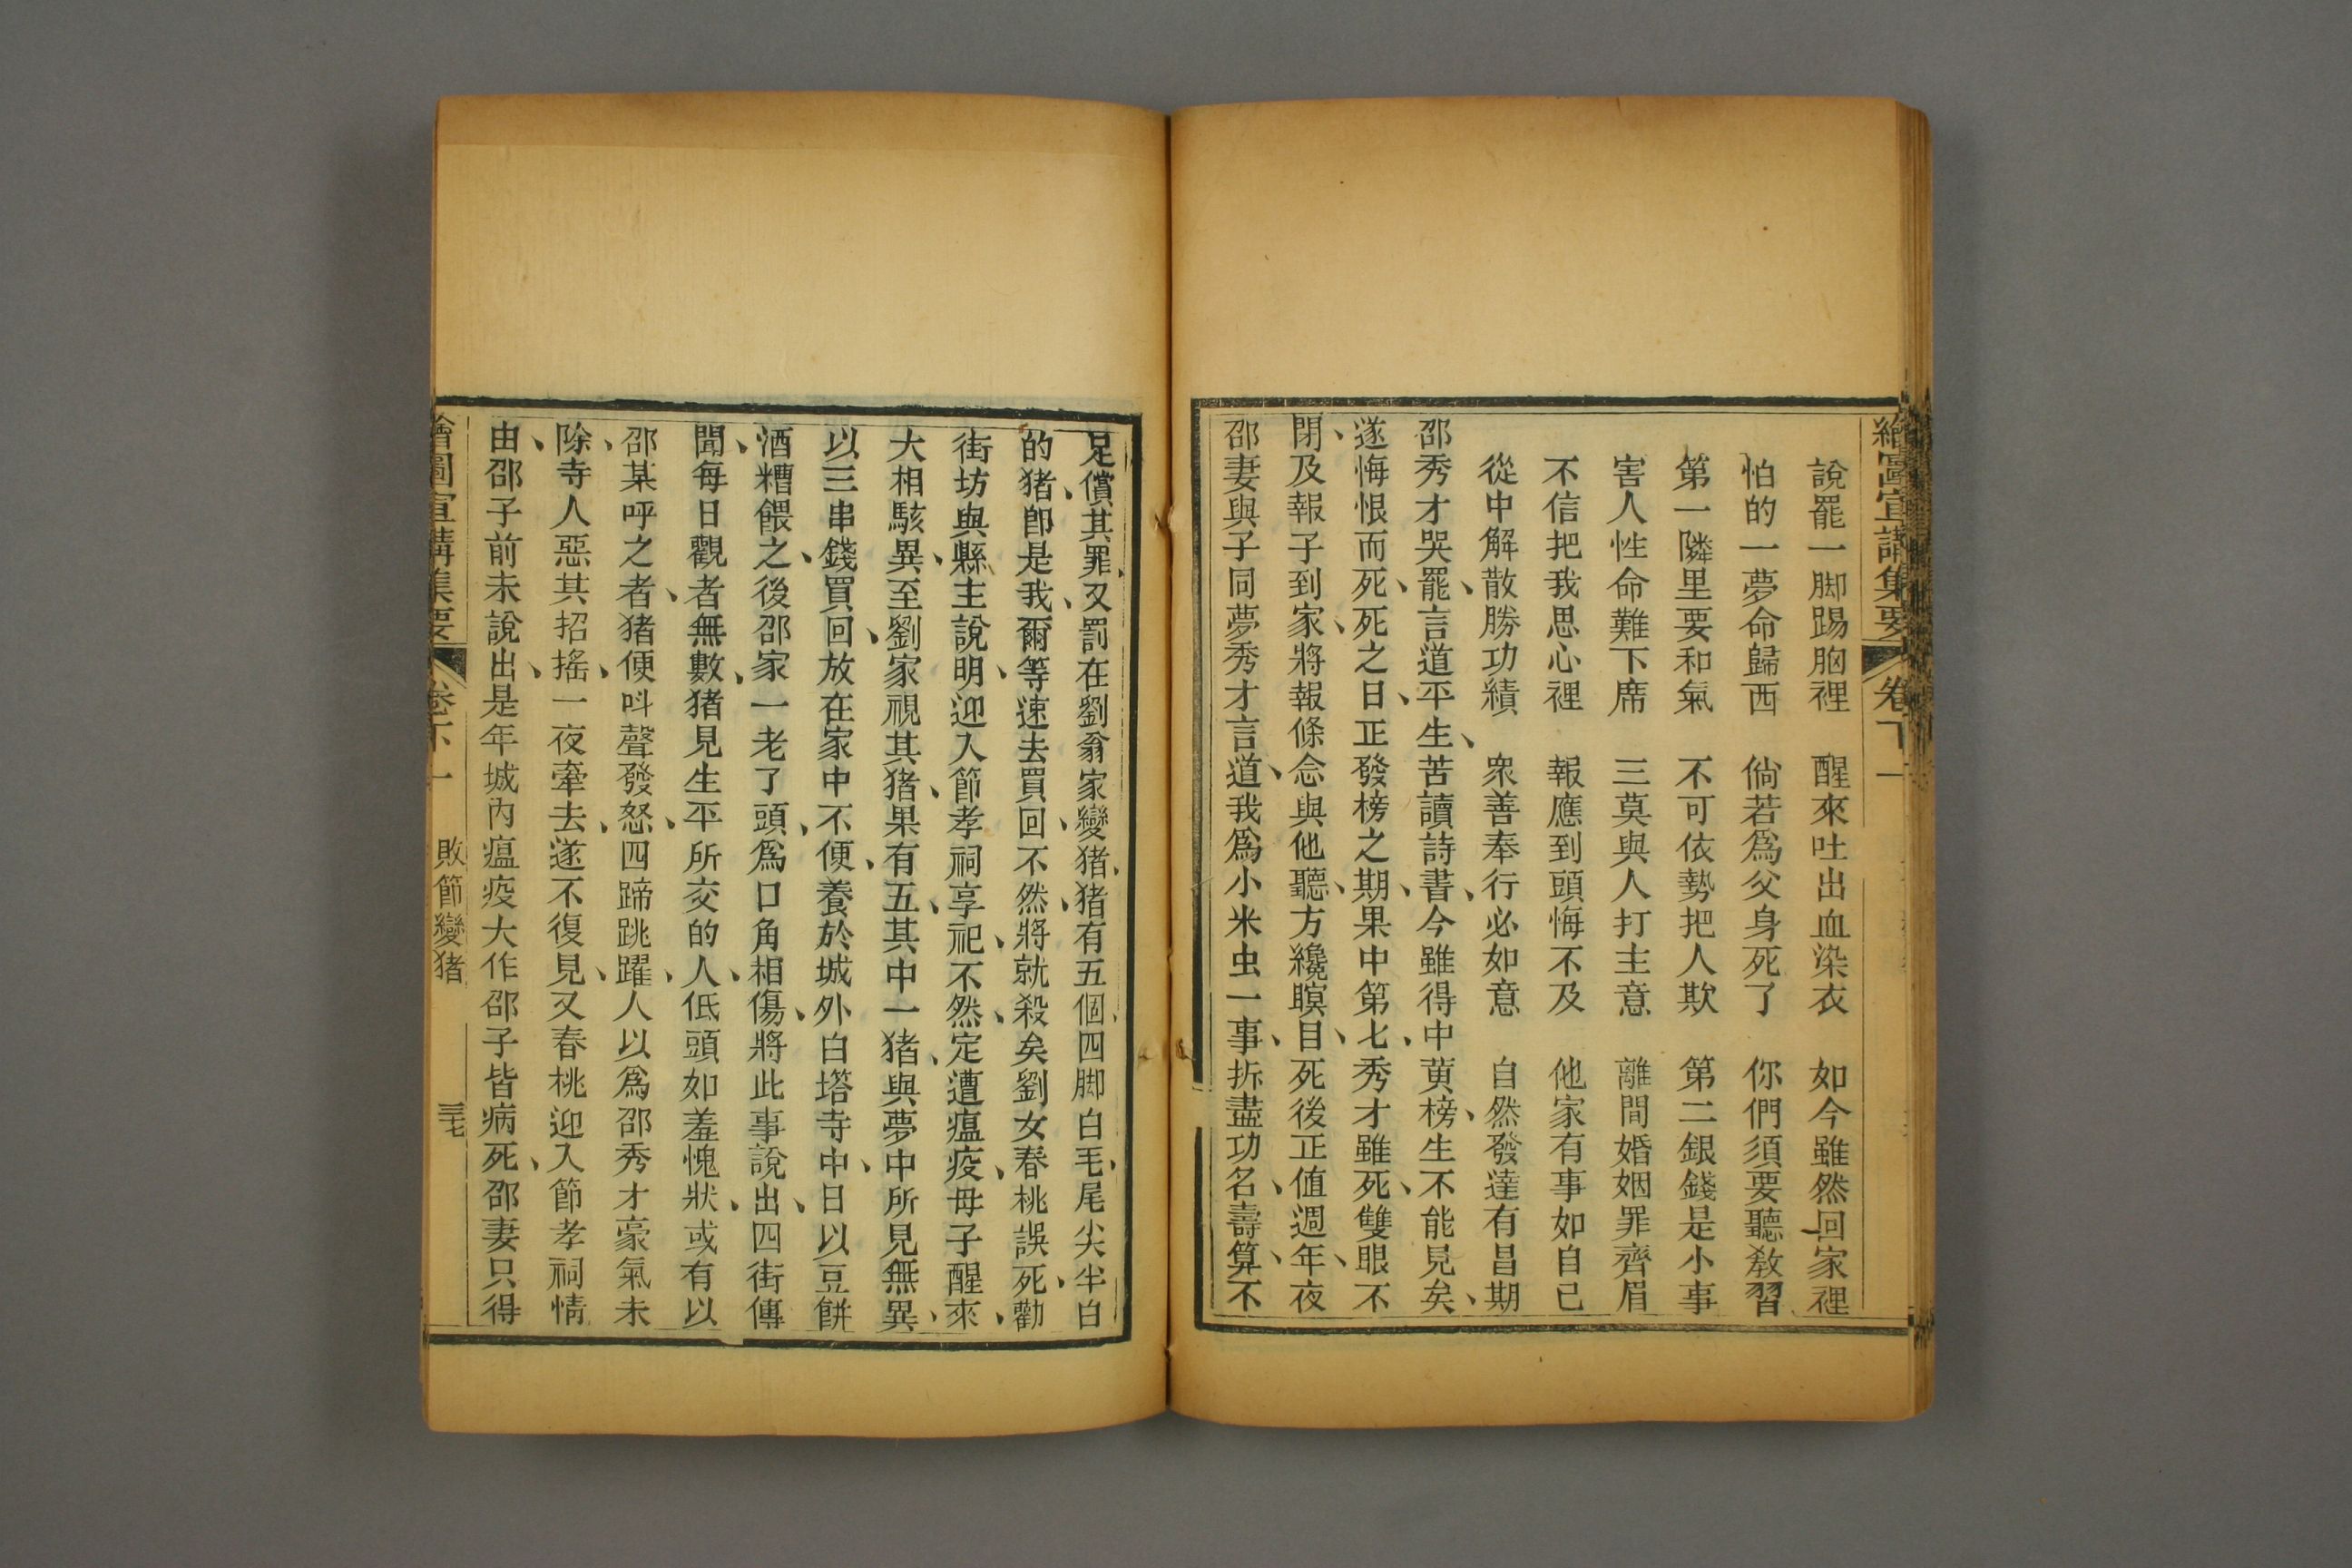 繪圖宣講集要 卷下一
說罷一脚踢胸裡 醒來吐出血染衣 如今雖然回家裡
怕的一夢命歸西 倘若爲父身死了 你們須要聽教習
第一隣里要和氣 不可依勢把人欺 第二銀錢是小事
害人性命難下席 三莫與人打主意 離間婚姻罪齊眉
不信把我思心裡 報應到頭悔不及 他家有事如自己
從中解散勝功績 衆善奉行必如意 自然發達有昌期
邵秀才哭罷、言道平生、苦讀詩書、今雖得中黃榜、生不能見矣、
遂悔恨而死、死之日、正發榜之期、果中第七、秀才雖死、雙眼不
閉、及報子到家、將報條念與他聽、方纔瞑目、死後正值週年、夜
邵妻與子同夢秀才言道、我爲小米虫一事、折盡功名、壽算、不
足償其罪、又罰在劉翁家變猪、猪有五個、四脚白毛、尾尖半白
的猪、卽是我、爾等速去買回、不然、將就殺矣劉女春桃誤死、勸
街坊與縣主說明、迎入節孝祠享祀、不然、定遭瘟疫、母子醒來、
大相駭異、至劉家視其猪、果有五、其中一猪、與夢中所見無異、
以三串錢買回、放在家中不便、養於城外白塔寺中、日以豆餅
酒糟餵之、後邵家一老了頭、爲口角相傷、將此事說出、四街傳
聞、每日觀者無數、猪見生平所交的人、低頭如羞愧狀、或有以
邵某呼之者、猪便呌聲發怒、四蹄跳躍、人以爲邵秀才豪氣未
除、寺人惡其招搖、一夜牽去、遂不復見、又春桃迎入節孝祠情
由、邵子前未說出、是年城內瘟疫大作邵子皆病死、邵妻只得
繪圖宣講集要 卷下一 敗節變猪 三七